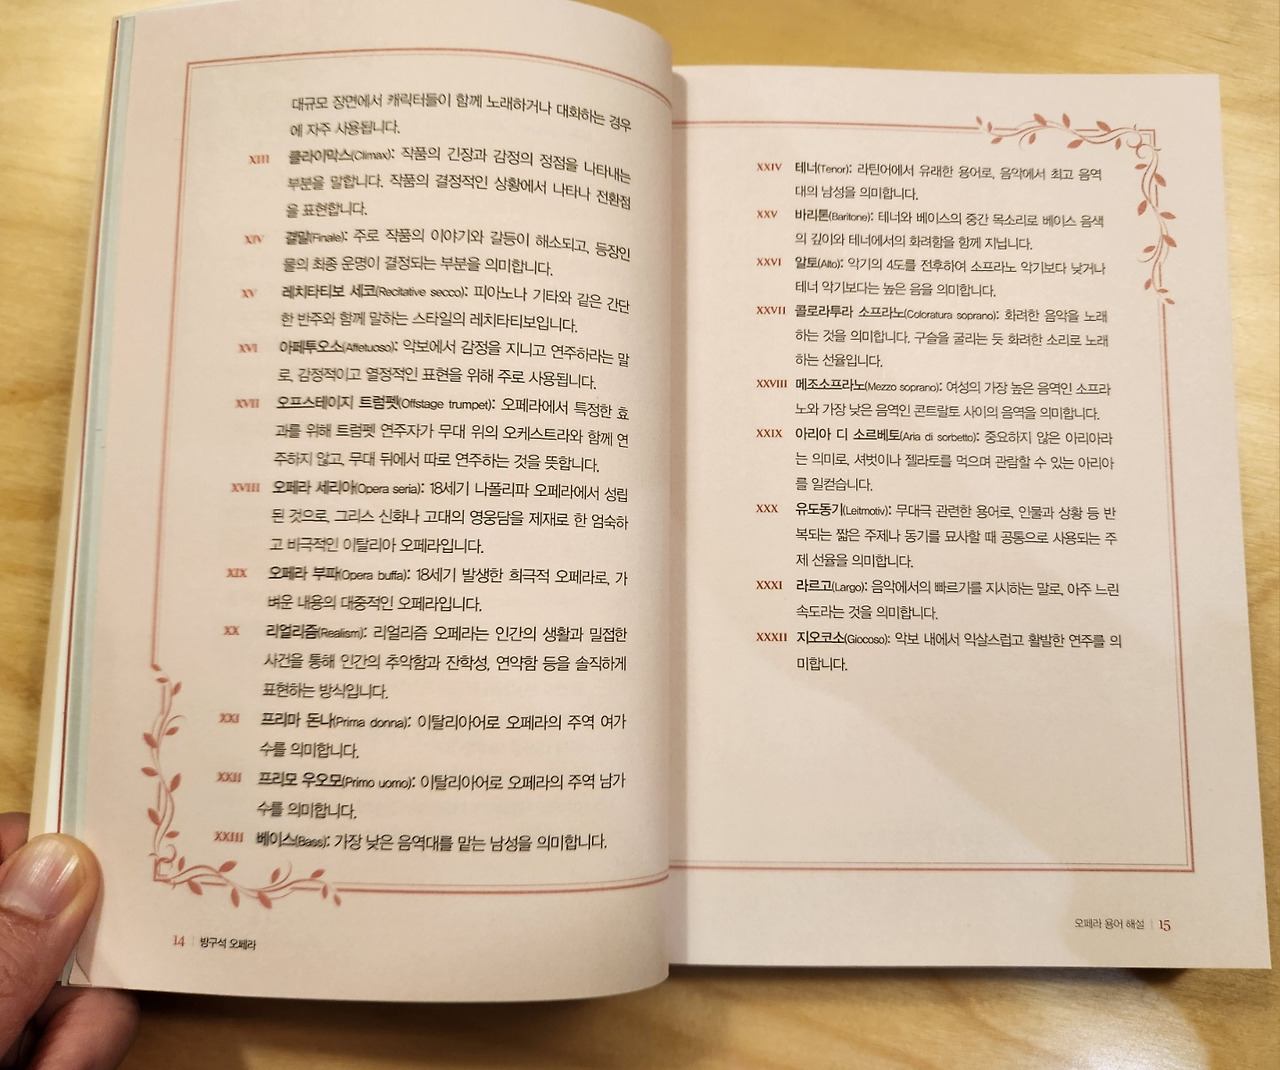 대규모 장면에서 캐릭터들이 함께 노래하거나 대화하는 경우
에 자주 사용됩니다.
XIII 클라이막스(Climax): 작품의 긴장과 감정의 정점을 나타내는
부분을 말합니다. 작품의 결정적인 상황에서 나타나 전환점
을 표현합니다.
XIV 결말(Finale): 주로 작품의 이야기와 갈등이 해소되고, 등장인
물의 최종 운명이 결정되는 부분을 의미합니다.
XV 레치타티보 세코(Recitative secco): 피아노나 기타와 같은 간단
한 반주와 함께 말하는 스타일의 레치타티보입니다.
XVI 아페투오소(Affetuoso): 악보에서 감정을 지니고 연주하라는 말
로, 감정적이고 열정적인 표현을 위해 주로 사용됩니다.
XVII 오프스테이지 트럼펫(Offstage trumpet): 오페라에서 특정한 효
과를 위해 트럼펫 연주자가 무대 위의 오케스트라와 함께 연
주하지 않고, 무대 뒤에서 따로 연주하는 것을 뜻합니다.
XVIII 오페라 세리아(Opera seria): 18세기 나폴리파 오페라에서 성립
된 것으로, 그리스 신화나 고대의 영웅담을 제재로 한 엄숙하
고 비극적인 이탈리아 오페라입니다.
XIX 오페라 부파(Opera buffa): 18세기 발생한 희극적 오페라로, 가
벼운 내용의 대중적인 오페라입니다.
XX 리얼리즘(Realism): 리얼리즘 오페라는 인간의 생활과 밀접한
사건을 통해 인간의 추악함과 잔학성, 연약함 등을 솔직하게
표현하는 방식입니다.
XXI 프리마 돈나(Prima donna): 이탈리아어로 오페라의 주역 여가
수를 의미합니다.
XXII 프리모 우오모(Primo uomo): 이탈리아어로 오페라의 주역 남가
수를 의미합니다.
XXIII 베이스(Bass): 가장 낮은 음역대를 맡는 남성을 의미합니다.
14 | 방구석 오페라
XXIV 테너(Tenor): 라틴어에서 유래한 용어로, 음악에서 최고 음역
대의 남성을 의미합니다.
XXV 바리톤(Baritone): 테너와 베이스의 중간 목소리로 베이스 음색
의 깊이와 테너에서의 화려함을 함께 지닙니다.
XXVI 알토(Alto): 악기의 4도를 전후하여 소프라노 악기보다 낮거나
테너 악기보다는 높은 음을 의미합니다.
XXVII 콜로라투라 소프라노(Coloratura soprano): 화려한 음악을 노래
하는 것을 의미합니다. 구슬을 굴리는 듯 화려한 소리로 노래
하는 선율입니다.
XXVIII 메조소프라노(Mezzo soprano): 여성의 가장 높은 음역인 소프라
노와 가장 낮은 음역인 콘트랄토 사이의 음역을 의미합니다.
XXIX 아리아 디 소르베토(Aria di sorbetto): 중요하지 않은 아리아라
는 의미로, 셔벗이나 젤라토를 먹으며 관람할 수 있는 아리아
를 일컫습니다.
XXX 유도동기(Leitmotiv): 무대극 관련한 용어로, 인물과 상황 등 반
복되는 짧은 주제나 동기를 묘사할 때 공통으로 사용되는 주
제 선율을 의미합니다.
XXXI 라르고(Largo): 음악에서의 빠르기를 지시하는 말로, 아주 느린
속도라는 것을 의미합니다.
XXXII 지오코소(Giocoso): 악보 내에서 익살스럽고 활발한 연주를 의
미합니다.
오페라 용어 해설 | 15